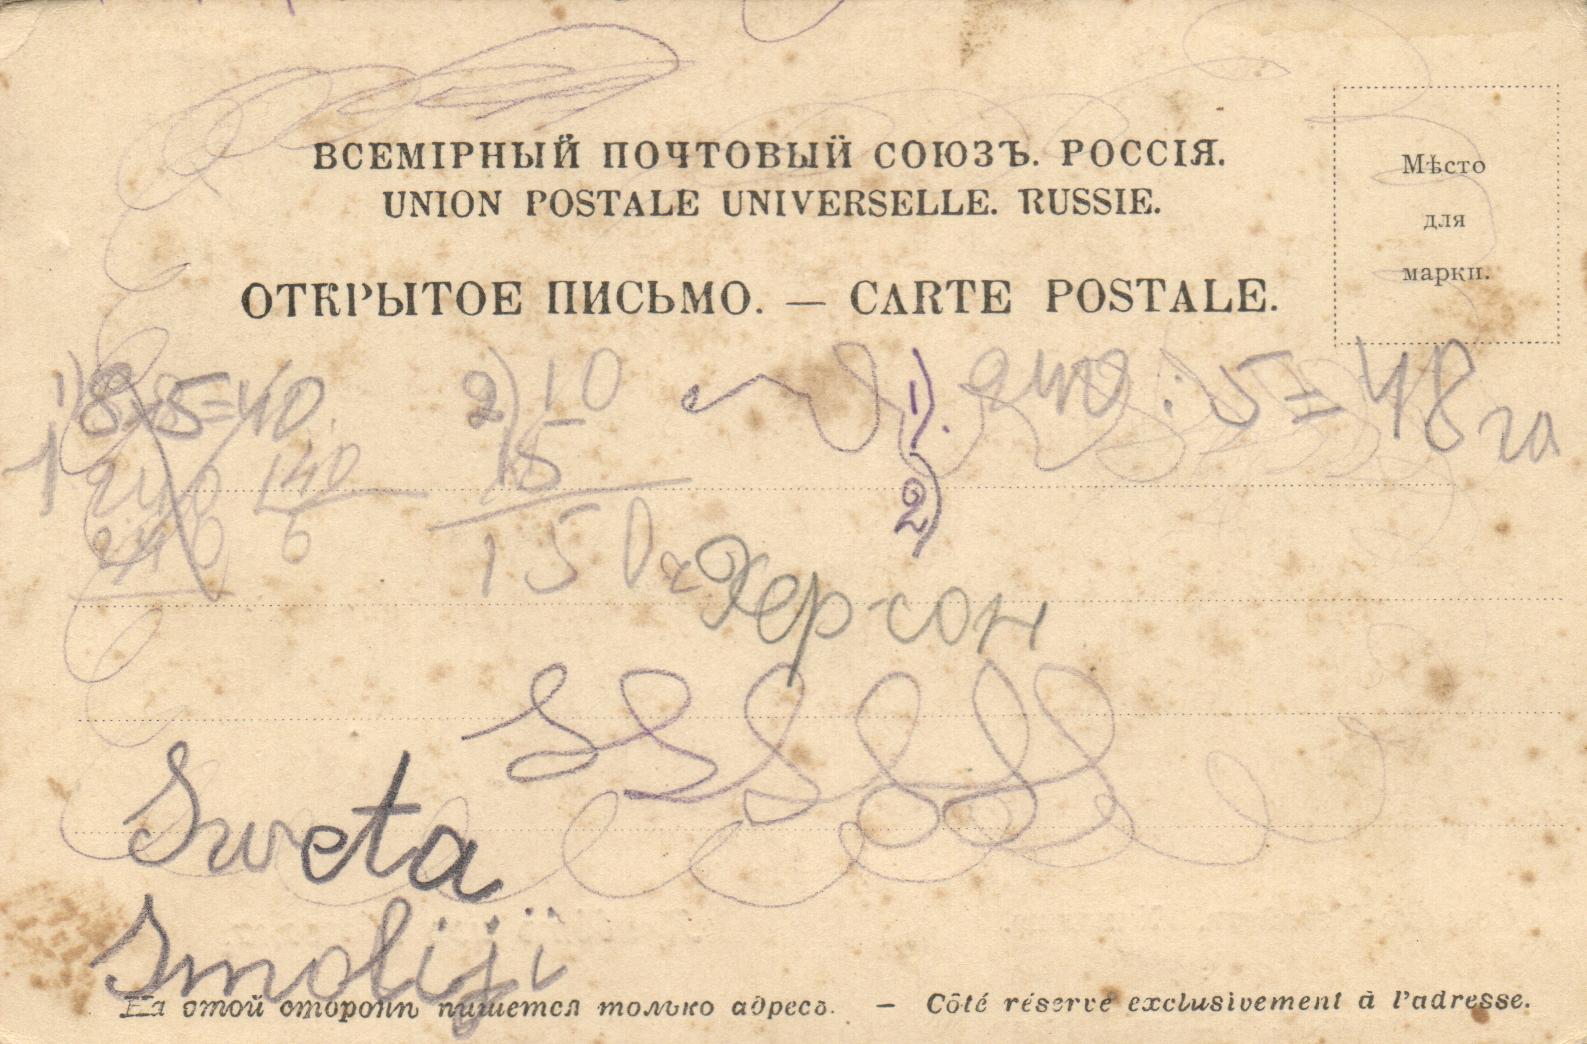 ВСЕМІРНЫЙ ПОЧТОВЫЙ СОЮЗЪ. РОССІЯ.
UNION POSTALE UNIVERSELLE. RUSSIE.
Мѣсто
для
марки.
ОТКРЫТОЕ ПИСЬМО. — CARTE POSTALE.
1) 8×5=40
240 140
240 6
2) 10
15
150
1). 240 : 5 = 48 га
2)
Херсон
Sweta
Smolijï
На этой сторонѣ пишется только адресъ. — Côté réservé exclusivement à l'adresse.